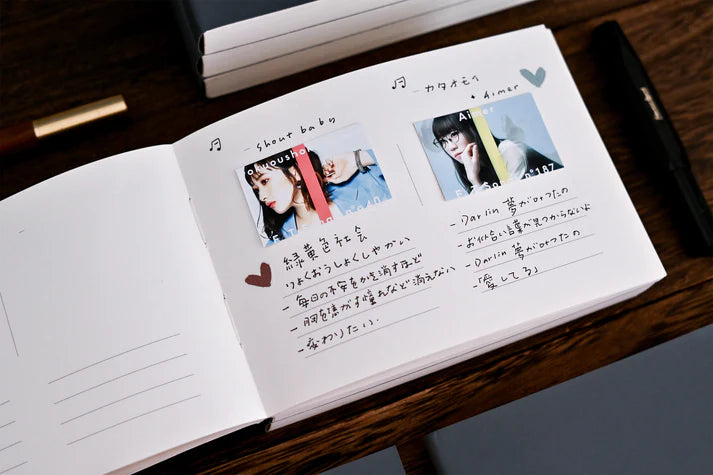 - Shout baby
ryokuoushoku
緑黄色社会
りょくおうしょくしゃかい
- 毎日の不安をかき消すほど
- 胸を焦がす憧れなど消えない
- 変わりたい.
- カタオモイ
• Aimer
Aimer
- Darlin 夢が叶ったの
- お似合い言葉が見つからないよ
- Darlin 夢が叶ったの
- 「愛してる」